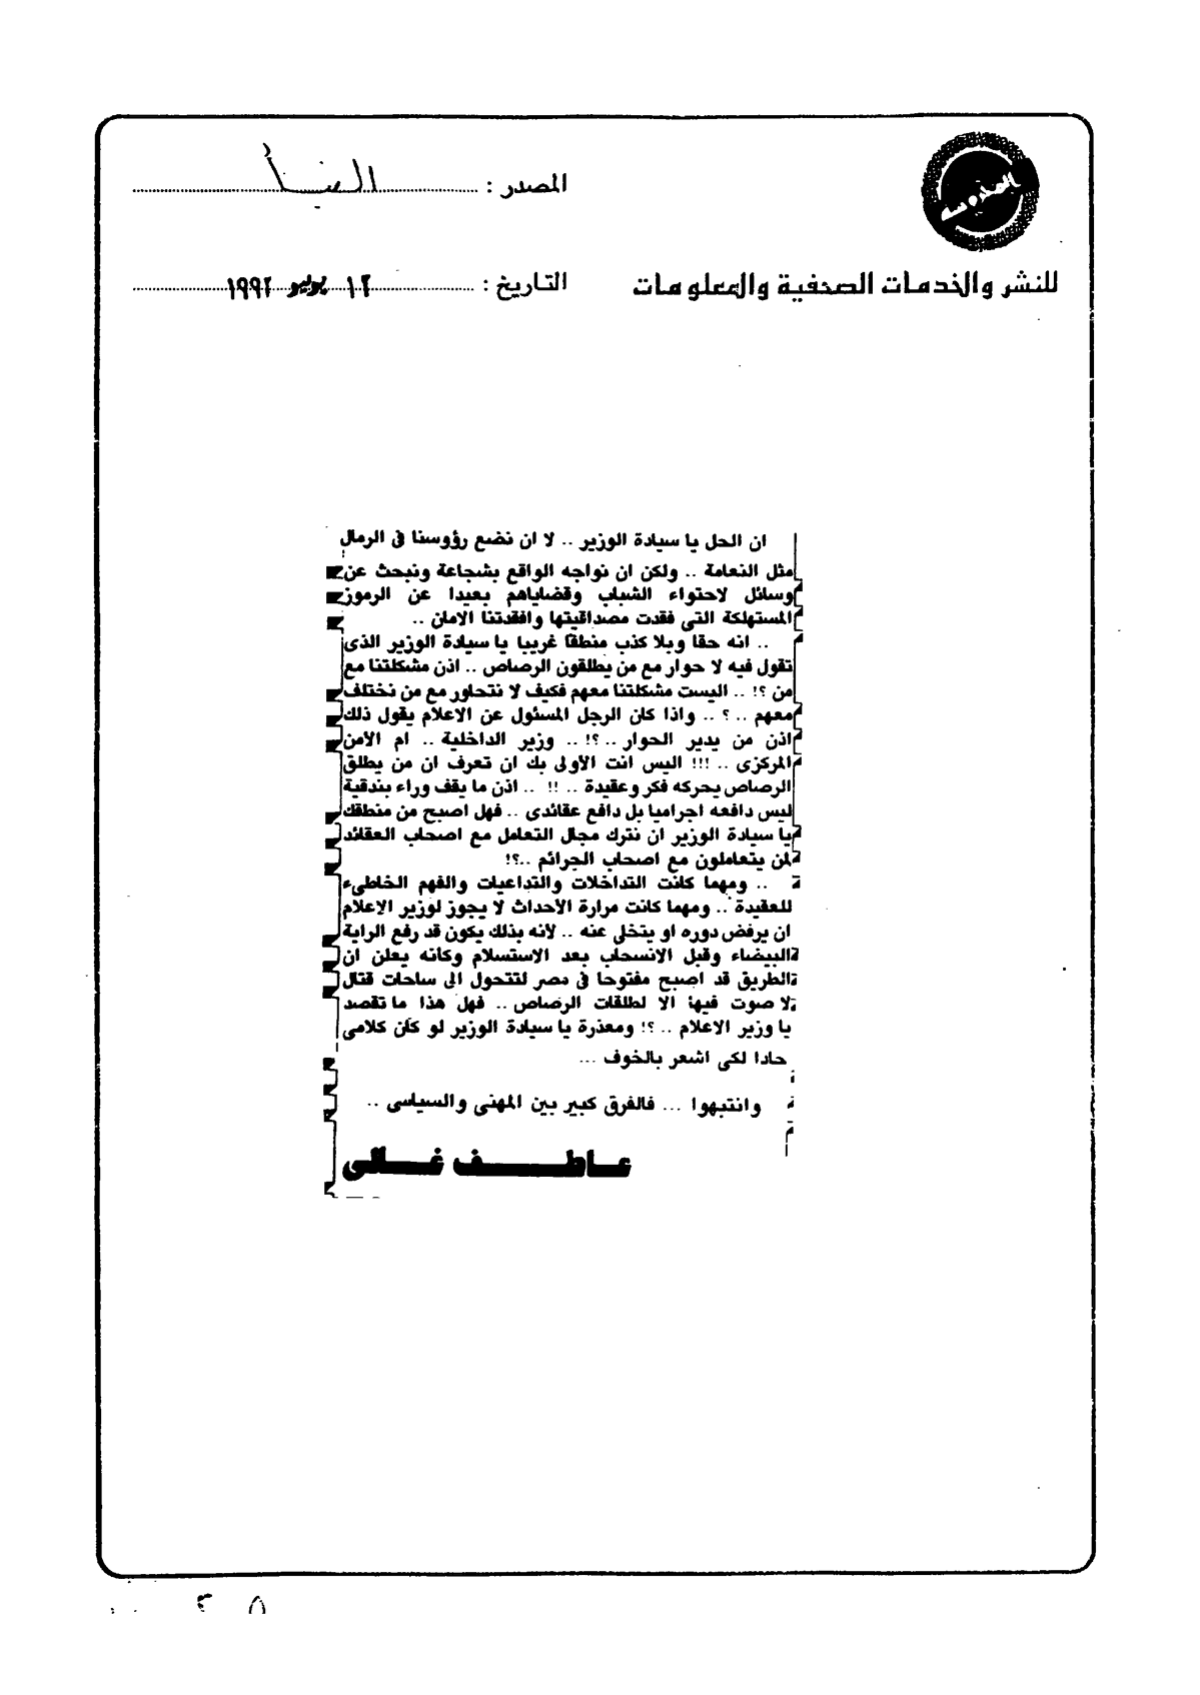 المصدر : النبأ
للنشر والخدمات الصحفية والمعلومات
التاريخ : ١٢ يوليو ١٩٩٢
ان الحل يا سيادة الوزير .. لا ان نضع رؤوسنا فى الرمال
مثل النعامة .. ولكن ان نواجه الواقع بشجاعة ونبحث عن
وسائل لاحتواء الشباب وقضاياهم بعيدا عن الرموز
المستهلكة التى فقدت مصداقيتها وافقدتنا الامان ..
.. انه حقا وبلا كذب منطقا غريبا يا سيادة الوزير الذى
تقول فيه لا حوار مع من يطلقون الرصاص .. اذن مشكلتنا مع
من ؟! .. اليست مشكلتنا معهم فكيف لا نتحاور مع من نختلف
معهم .. ؟ .. واذا كان الرجل المسئول عن الاعلام يقول ذلك
اذن من يدير الحوار ..؟! .. وزير الداخلية .. ام الأمن
المركزى .. !!! اليس انت الأولى بك ان تعرف ان من يطلق
الرصاص يحركه فكر وعقيدة .. !! .. اذن ما يقف وراء بندقية
ليس دافعه اجراميا بل دافع عقائدى .. فهل اصبح من منطقك
يا سيادة الوزير ان نترك مجال التعامل مع اصحاب العقائد
لمن يتعاملون مع اصحاب الجرائم ..؟!
.. ومهما كانت التداخلات والتداعيات والفهم الخاطىء
للعقيدة .. ومهما كانت مرارة الأحداث لا يجوز لوزير الإعلام
ان يرفض دوره او يتخلى عنه .. لأنه بذلك يكون قد رفع الراية
البيضاء وقبل الانسحاب بعد الاستسلام وكانه يعلن ان
الطريق قد اصبح مفتوحا فى مصر لتتحول الى ساحات قتال
لا صوت فيها الا لطلقات الرصاص .. فهل هذا ما تقصد
يا وزير الاعلام .. ؟! ومعذرة يا سيادة الوزير لو كان كلامى
حادا لكى اشعر بالخوف ...
وانتبهوا ... فالفرق كبير بين المهنى والسياسى ..
عاطف غالى